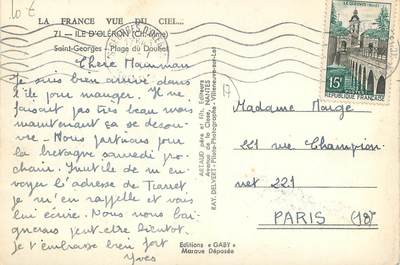 10 €
LA FRANCE VUE DU CIEL...
71. — ILE D'OLÉRON (Ch.-Mme)
Saint-Georges - Plage du Douhet
Chère Mamman
Je suis bien arrivé dans
l'île pour manger. Il ne
faisait pas très beau mais
maintenant ça se décou-
vre. Nous partirons pour
la bretagne samedi pro-
chain. Inutile de m'en
voyer l'adresse de
je m'en rappelle et vais
lui écrire. Nous nous bai-
gnerons peut-être bientot.
Je t'embrasse bien fort
Yves
ARTAUD père et fils, Editeurs
Avenue de la Close, NANTES
RAY. DELVERT - Pilote-Photographe - Villeneuve-sur-Lot
Editions « GABY »
Marque Déposée
LE QUESNOY (NORD)
15F
REPUBLIQUE FRANÇAISE
Madame
221 rue Championnet
221
PARIS (18)